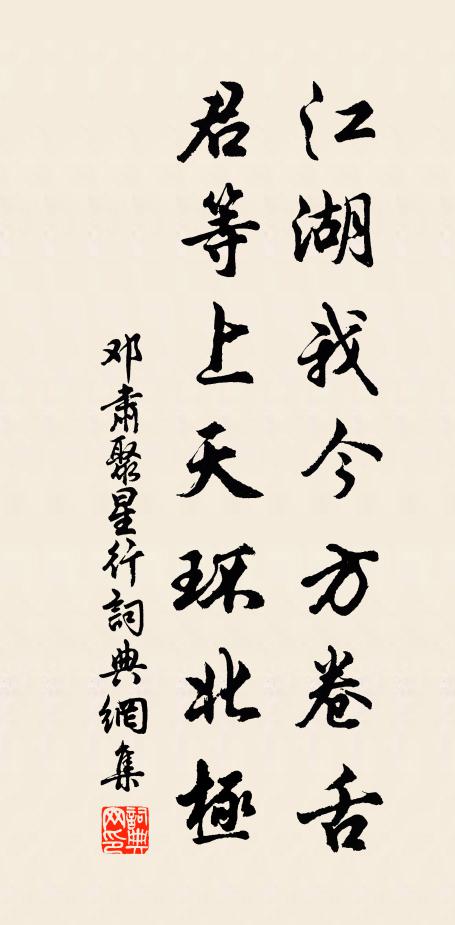 江湖我今方卷舌
君等上天环北極
邓肅聚星行詞典網集
詞典
网印